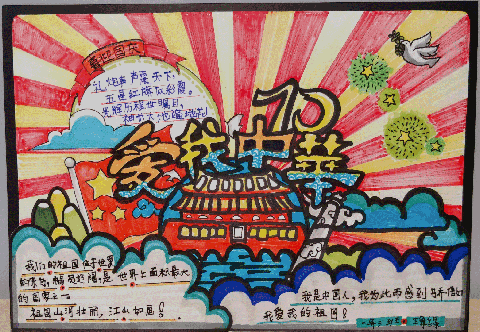 喜迎国庆
礼炮声声震天下,
五星红旗似彩霞。
光辉历程世瞩目,
神州大地遍地
70
爱我中华
我们的祖国位于世界
的东部,幅员辽阔,是世界上面积最大
的国家之一
祖国山河壮丽,江山如画!
我是中国人,我为此而感到
我爱我的祖国!